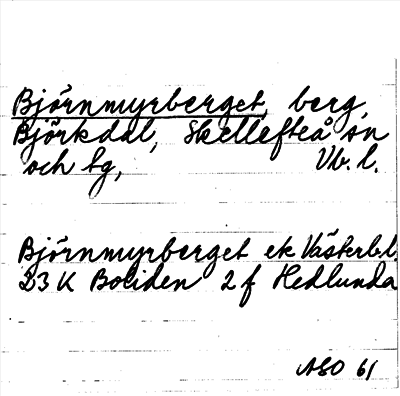 Björnmyrberget, berg,
Björkdal, Skellefteå sn
och lg, Vb. l.
Björnmyrberget ek Västerb.l.
23 K Boliden 2 f Hedlunda
ASO 61